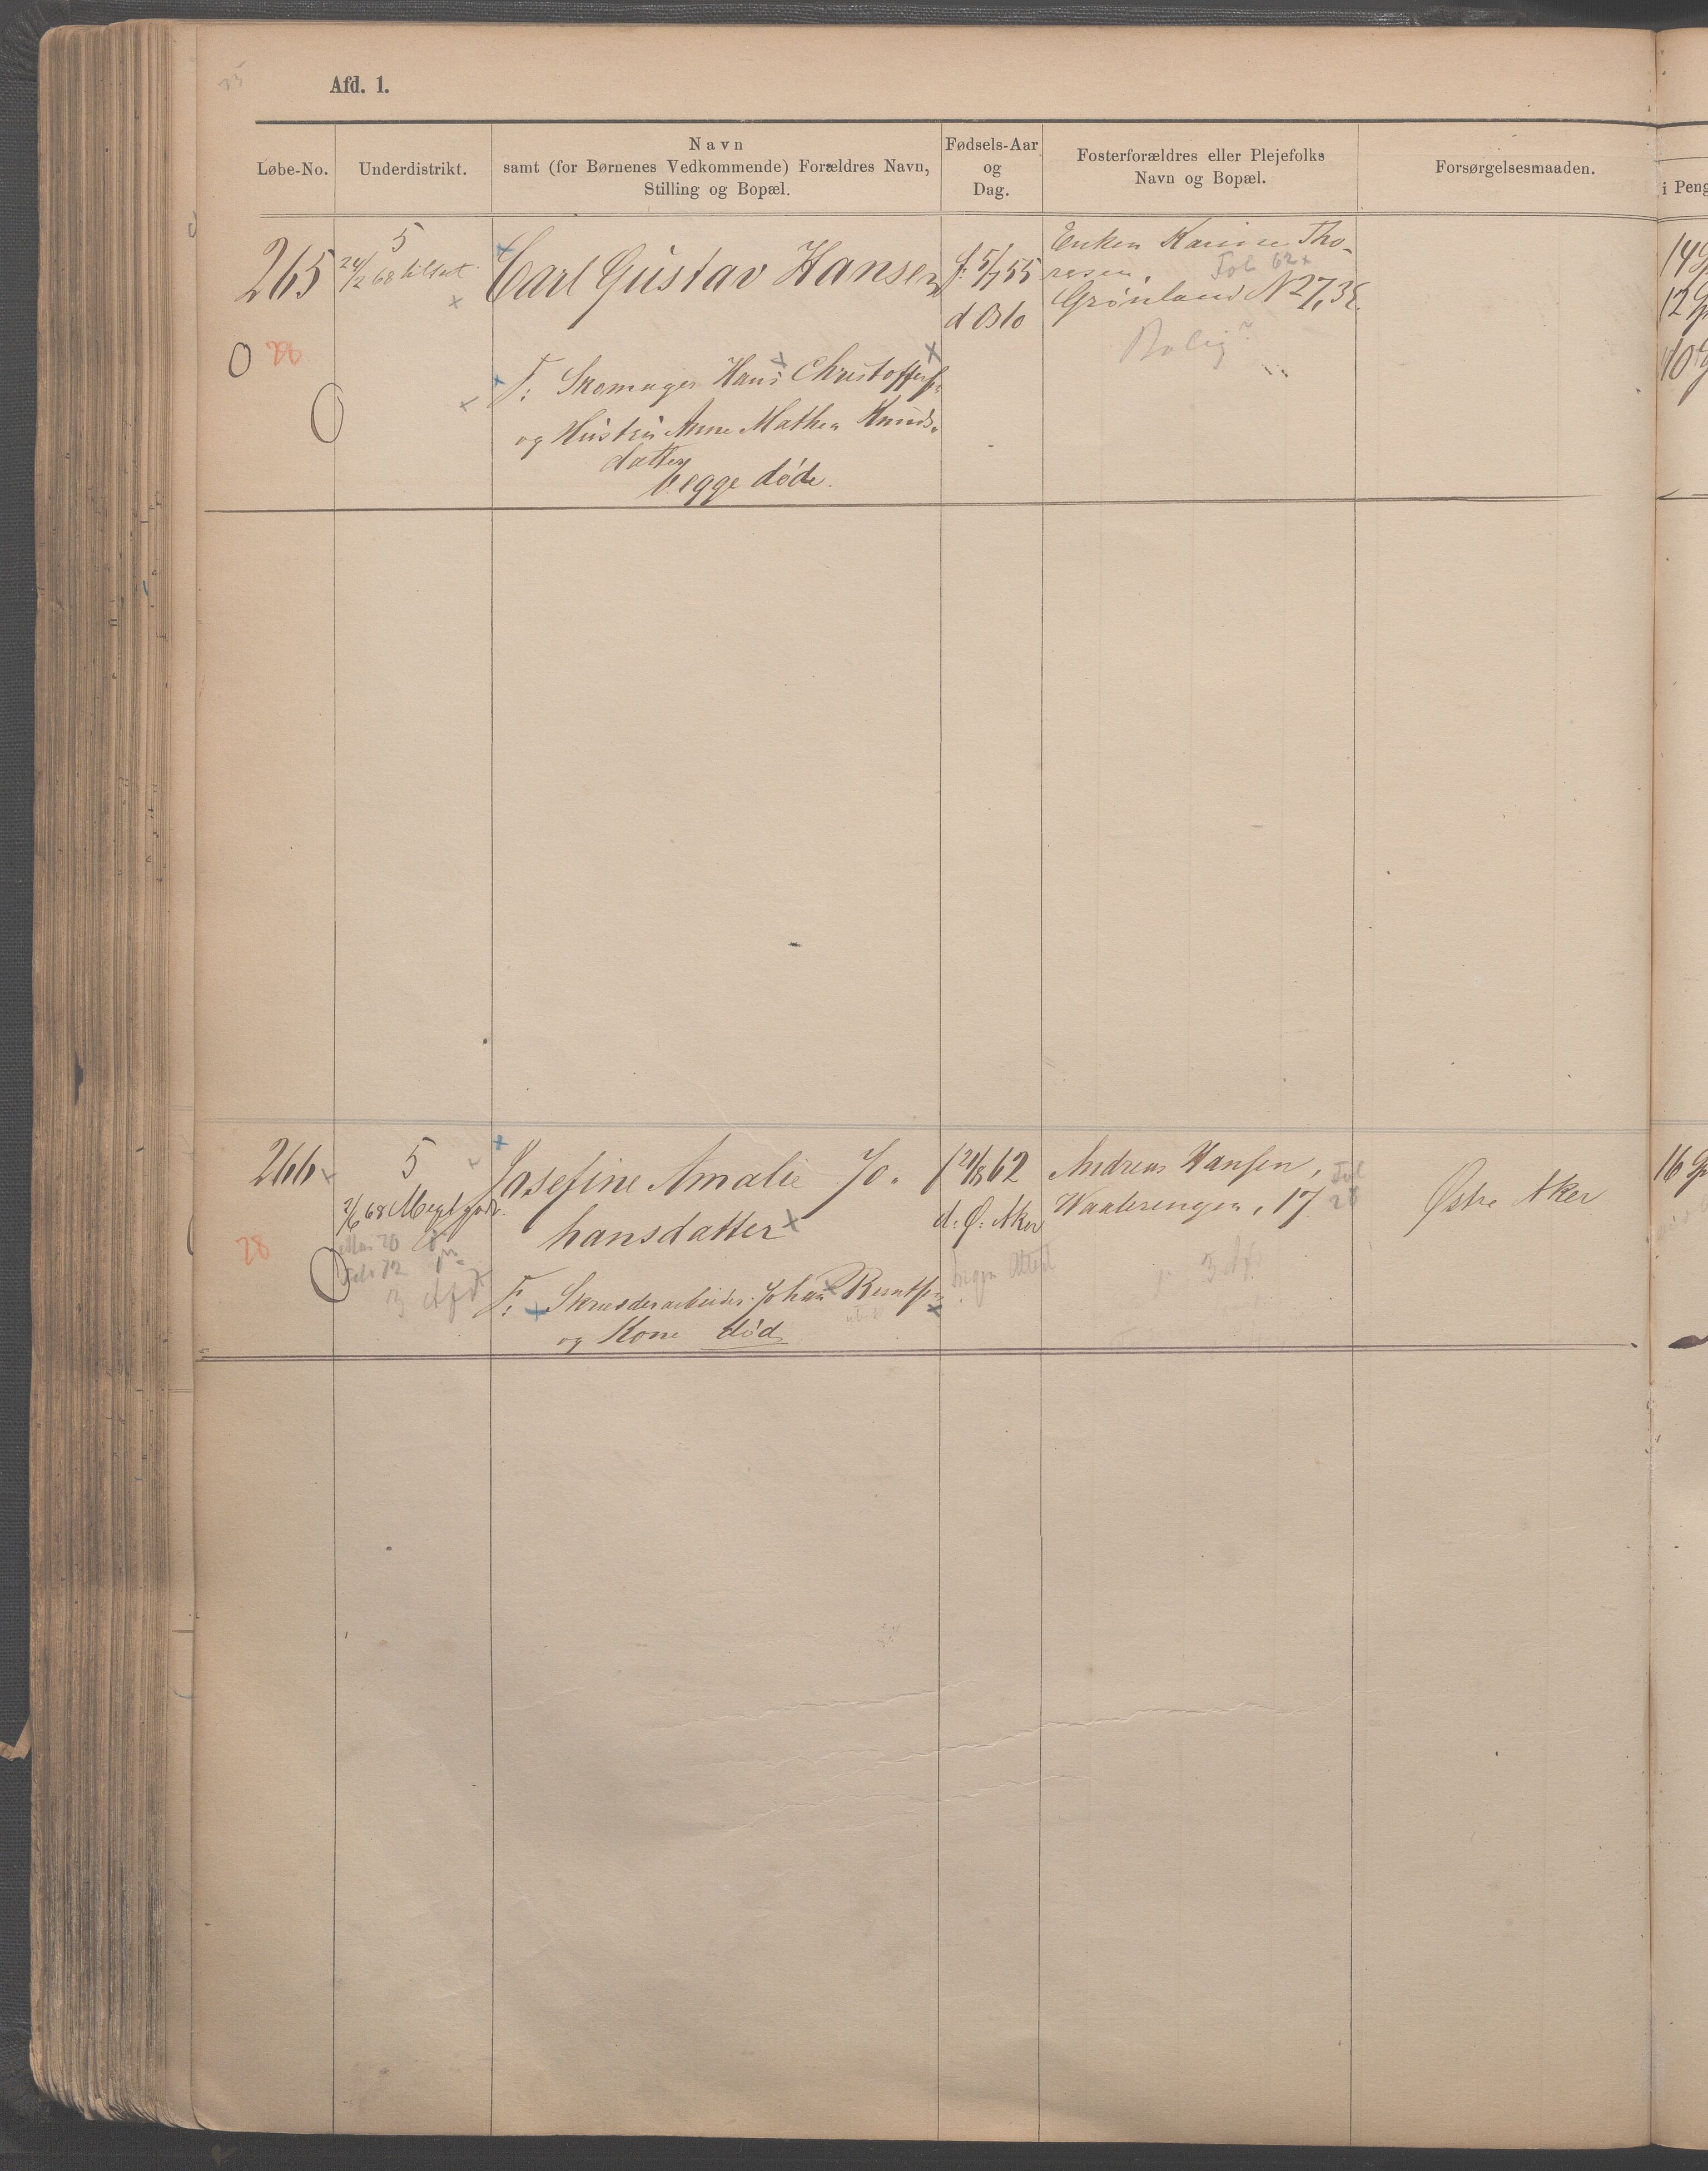 Afd. 1.
Løbe-No.
Underdistrikt.
Navn
samt (for Børnenes Vedkommende) Forældres Navn,
Stilling og Bopæl.
Fødsels-Aar
og
Dag.
Fosterforældres eller Plejefolks
Navn og Bopæl.
Forsørgelsesmaaden.
i Peng
265
5
24/2 68 tilset
Carl Gustav Hansen
f. 5/7 55
d Oslo
Enken Karine Tho-
resen.
Fol 62
Grønland N 27,38.
Bolig?
28
F: Skomager Hans Christoffers.
og Hustru Anne Mathea Knuds-
datter
begge døde.
14
12
10
266
5
2/6 68
Josefine Amalie Jo-
hansdatter
62
d. Ø. Aker
Andreas Hansen,
Waalerengen, 17
Fol
28
Østre Aker
16
28
Mai 70
Feb 72
3 Afd
Ingen Attest
3 Af
F: Johan Berntsen
og Kone død